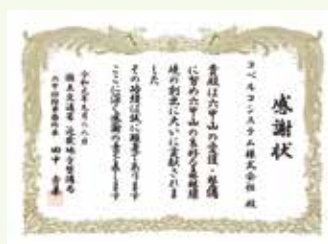 感謝状
コベルコシステム株式会社 殿
貴殿は六甲山の愛護・整備
に努め六甲山の良好な自然環
境の創出に大いに貢献されま
した
その功績は誠に顕著であります
ここに深く感謝の意を表します
令和元年九月八日
国土交通省 近畿地方整備局
六甲砂防事務所長 田中